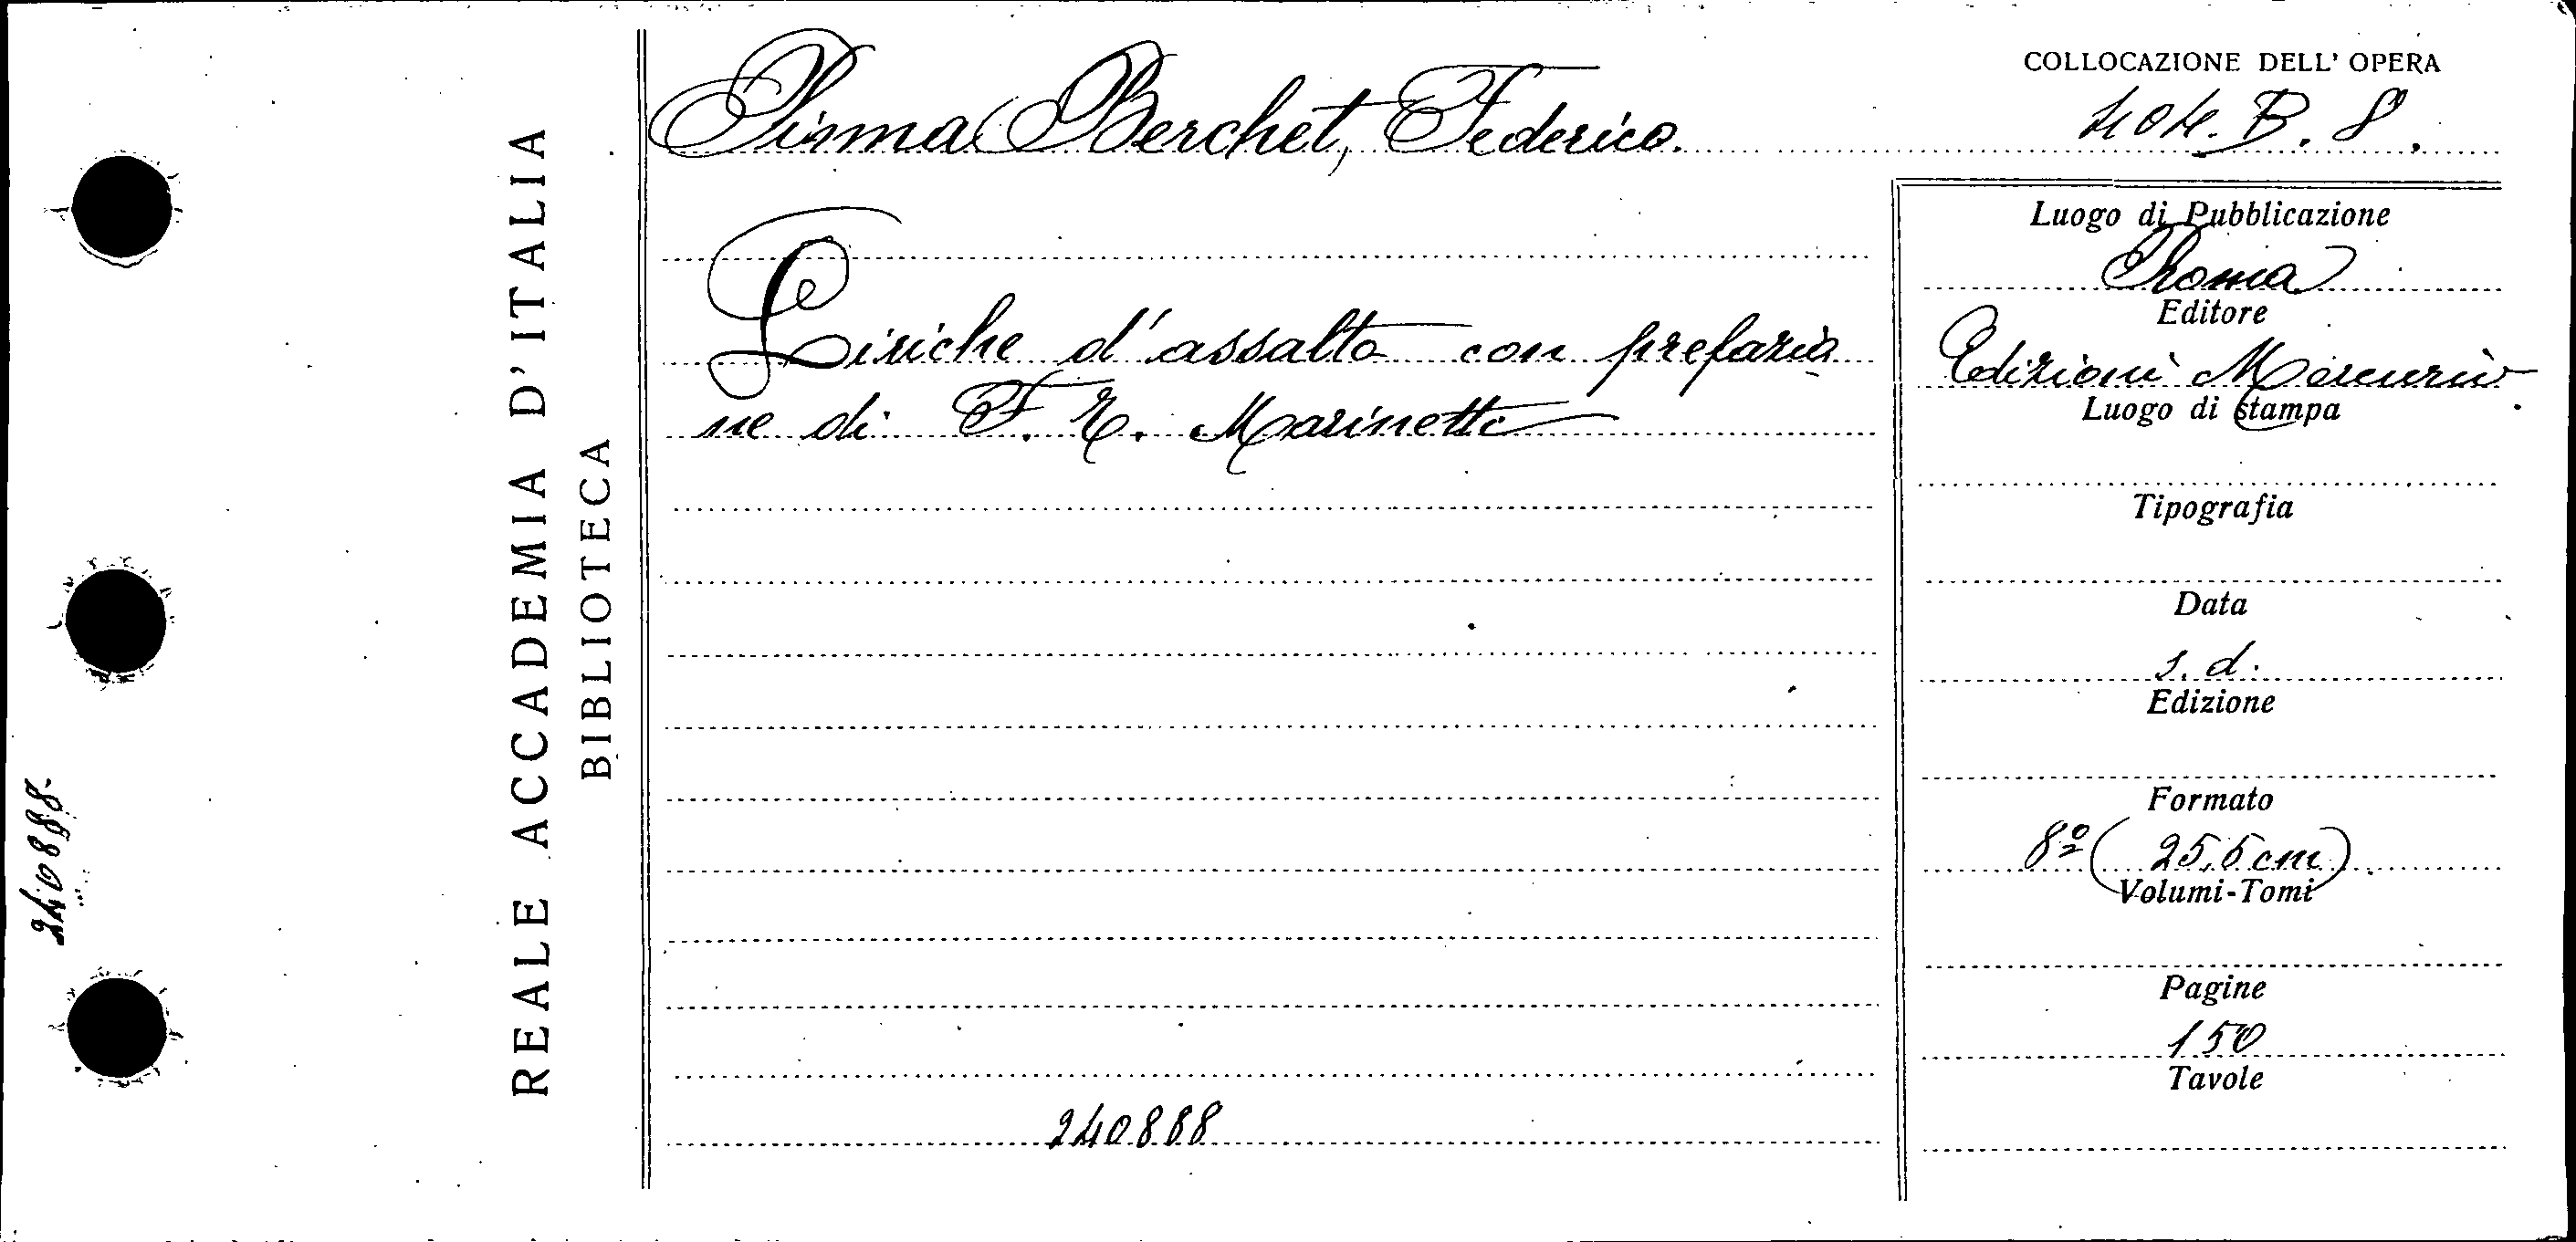 REALE ACCADEMIA D'ITALIA
BIBLIOTECA
240888
Pisma Berchet, Federico.
Liriche d'assalto con prefazio
ne di F. T. Marinetti
240888
COLLOCAZIONE DELL' OPERA
404. B. 8.
Luogo di Pubblicazione
Roma
Editore
Edizioni Mercurio
Luogo di stampa
Tipografia
Data
s. d.
Edizione
Formato
8º (25,5 cm)
Volumi-Tomi
Pagine
150
Tavole